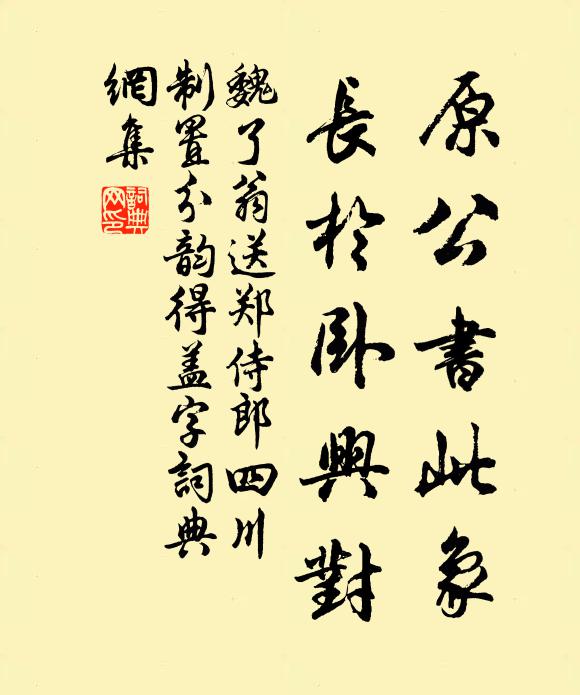 原公書此象
長於卧興對
魏了翁送郑侍郎四川
制置分韵得盖字詞典
網集
詞典網印